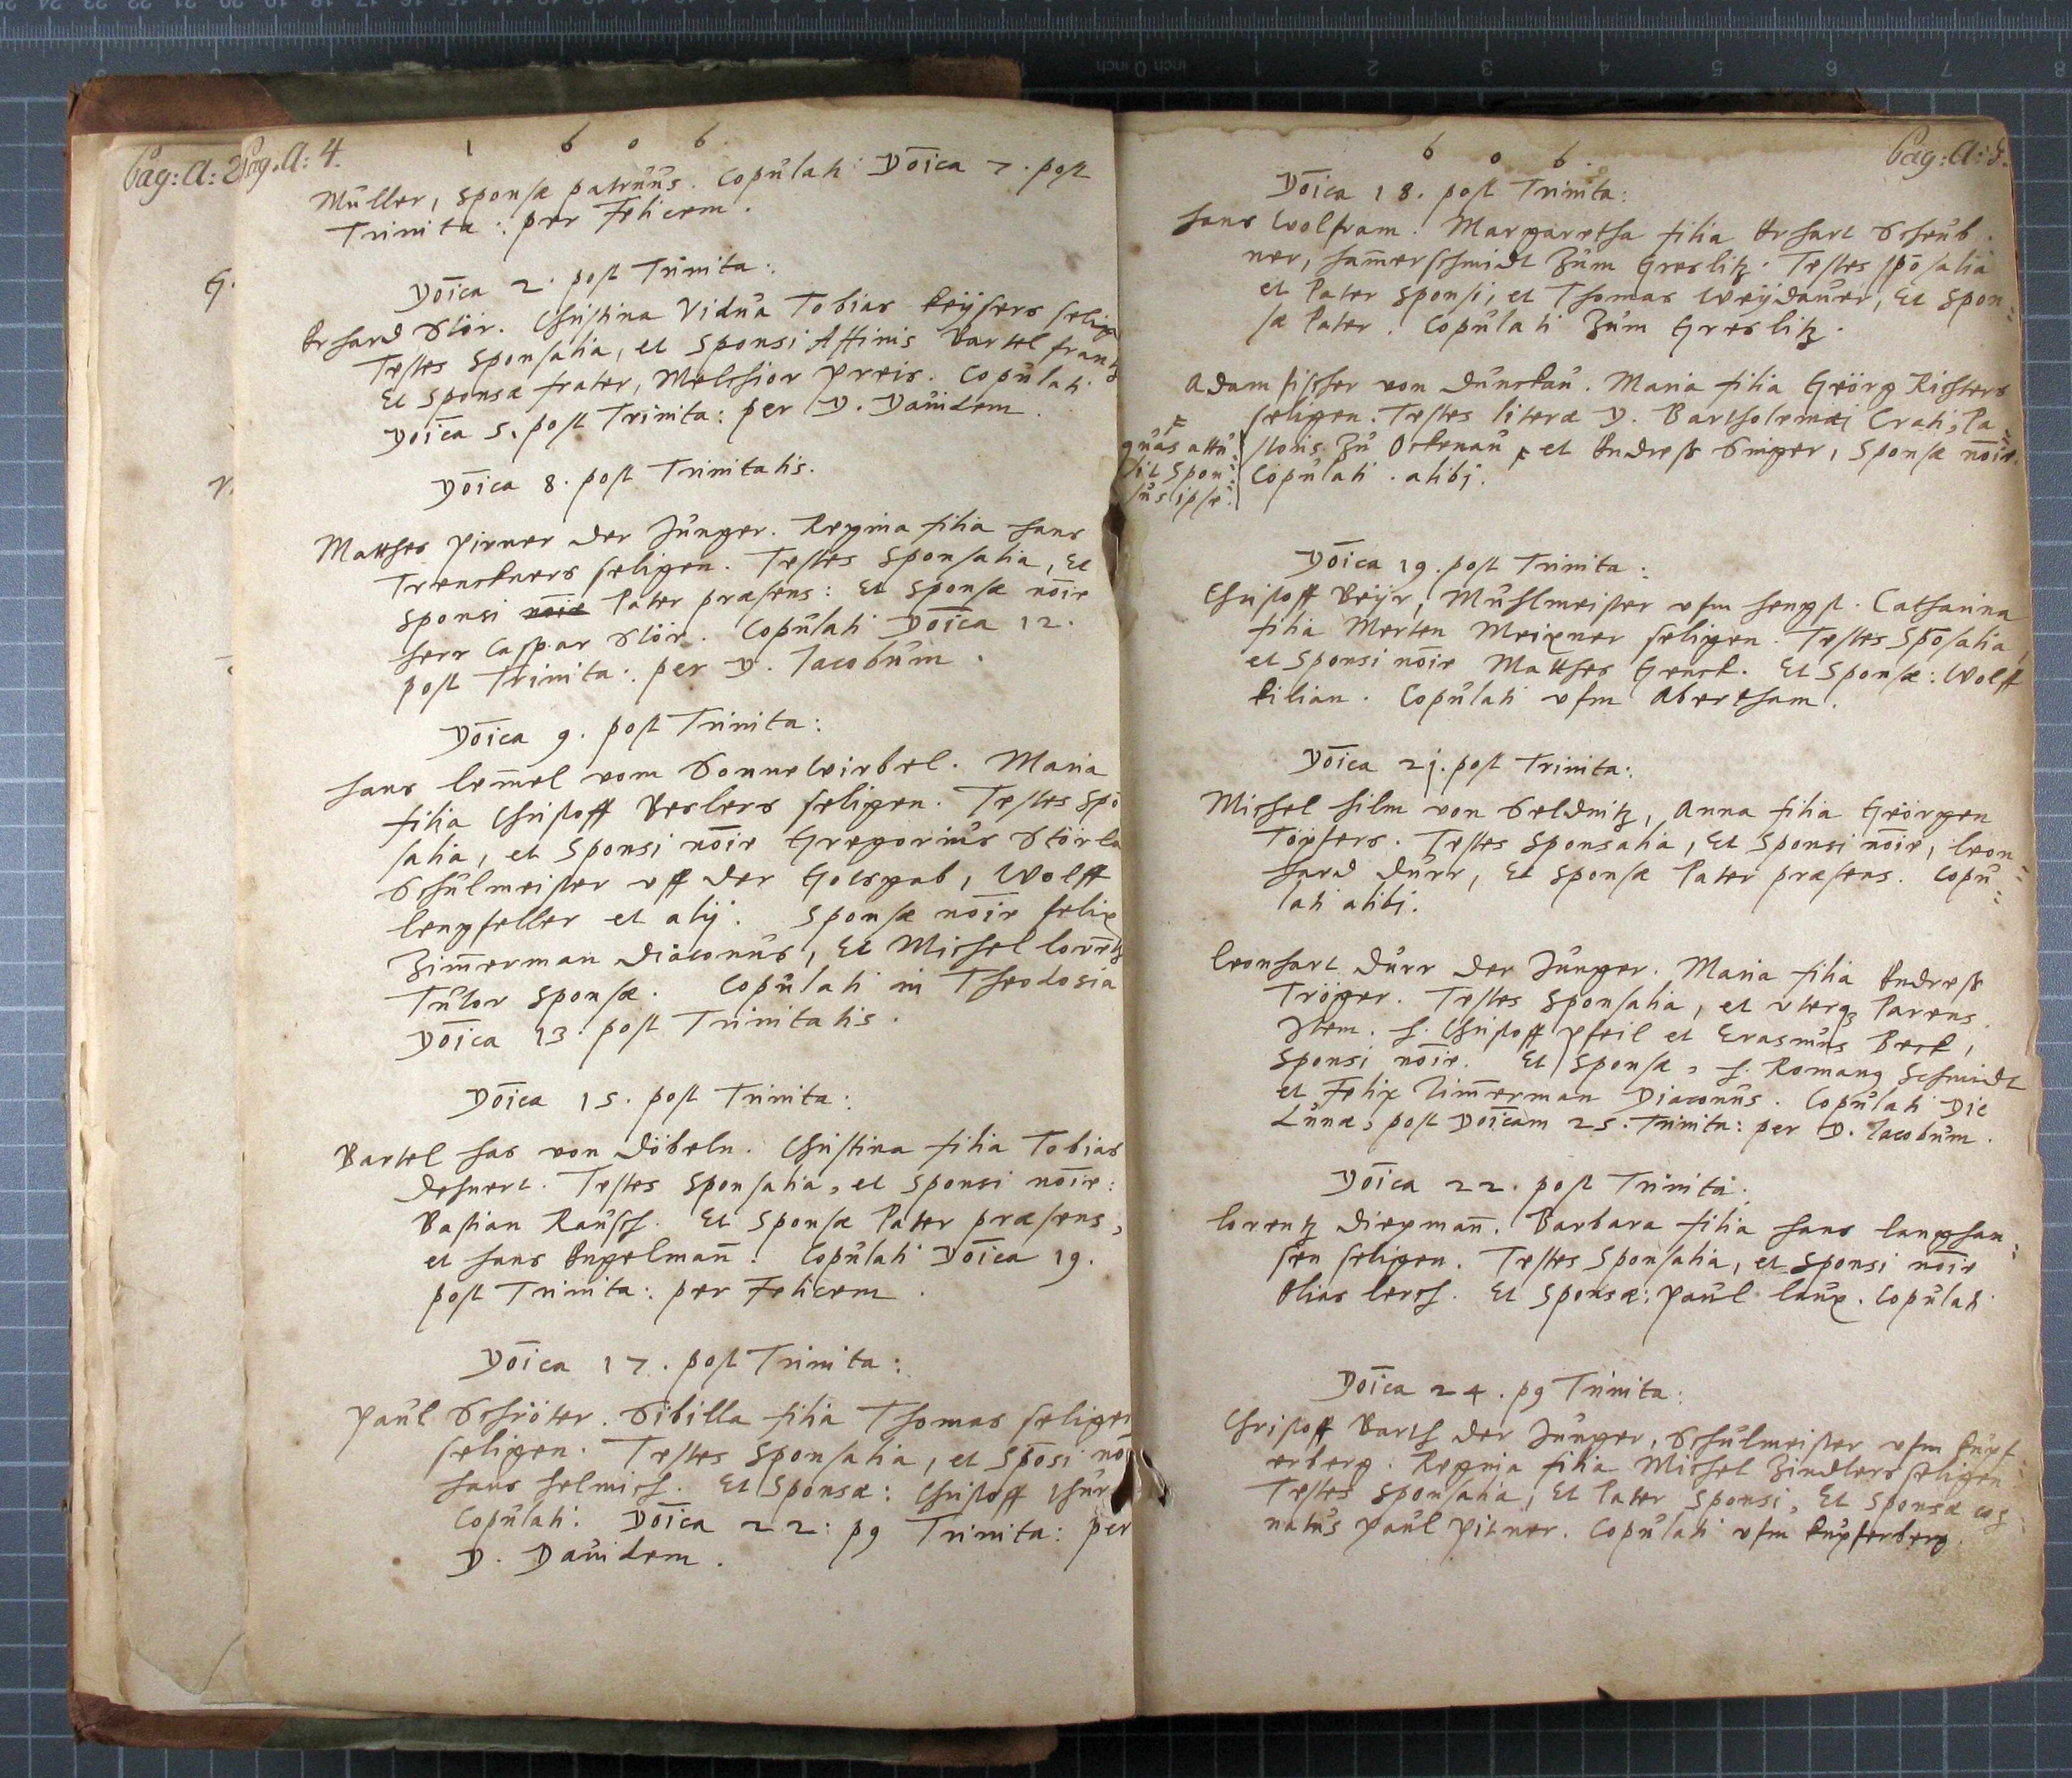 Pag: A: 4.
1 6 0 6.
Müller, Sponsæ patruus. Copulati Dōica 7. post
Trinita: per Felicem.
Dōica 2. post Trinita:
Erhard Stör. Christina Vidua Tobias Keÿsers selig
Testes Sponsalia, et Sponsi Affinis Bartel Frantz
Et Sponsæ frater, Melchior Preis. Copulati
Dōica 5. post Trinita: per D. Dauidem.
Dōica 8. post Trinitatis.
Matthes Pirner der Junger. Regina filia Hans
Trenckners seligen. Testes Sponsalia, Et
Sponsi nōie Pater præsens: Et Sponsæ nōie
Herr Caspar Stör. Copulati Dōica 12.
post Trinita: per D. Jacobum.
Dōica 9. post Trinita:
Hans Lem̄el vom Sonnewirbel. Maria
filia Christoff Beslers seligen. Testes Spō
salia, et Sponsi nōie Gregorius Störla
Schulmeister vff der Gotsgab, Wolff
Lengfeller et alij. Sponsæ nōie Felix
Zim̄erman Diaconus, Et Michel Lorētz
Tutor Sponsæ. Copulati in Theodosia
Dōica 13. post Trinitatis.
Dōica 15. post Trinita:
Bartel Has von Döbeln. Christina filia Tobias
Dehnert. Testes Sponsalia, et Sponsi nōie:
Bastian Rausch. Et Sponsæ Pater præsens,
et Hans Engelman̄. Copulati Dōica 19.
post Trinita: per Felicem.
Dōica 17. post Trinita:
Paul Schröter. Sibilla filia Thomas Seliger
seligen. Testes Sponsalia, et Spōsi nōi
Hans Helmich. Et Sponsæ: Christoff Thür
Copulati. Dōica 22: p9 Trinita: per
D. Dauidem.
6 0 6.
Pag: A: 5.
Dōica 18. post Trinita:
Hans Wolfram. Margaretha filia Erhart Scheub.
ner, Ham̄erschmidt Zum Greslitz. Testes Spōsalia
et Pater Sponsi, et Thomas Weÿdauer, Et Spon:
sæ Pater. Copulati Zum Greslitz.
Adam Fischer von Dunckau. Maria filia Geörg Richters
seligen. Testes literæ D. Bartholemæi Crati, Pa:
storis Zu Ockenau F et Endress Singer, Sponsæ nōie.
Copulati alibj.
F
quas attu:
lit Spon:
sus ipse.
Dōica 19. post Trinita:
Christoff Beÿr, Muhlmeister vfm Hengst. Catharina
filia Merten Meixner seligen. Testes Spōsalia,
et Sponsi nōie Matthes Genck. Et Sponsæ: Wolff
Kilian. Copulati vfm Abertham.
Dōica 21. post Trinita:
Michel Hilm von Seldnitz, Anna filia Geörgen
Töpfers. Testes Sponsalia, Et Sponsi nōie, Leon:
hard Dürr, Et Sponsæ Pater præsens. Copu:
lati alibj.
Leonhart Dürr der Junger. Maria filia Endress
Tröger. Testes Sponsalia, et vterq3 Parens.
Item. H. Christoff Pfeil et Erasmus Beck,
Sponsi nōie. Et Sponsæ, H. Roman9 Schmidt
et Felix Zim̄erman Diaconus. Copulati Die
Lunæ, post Dōicam 25. Trinita: per D. Jacobum.
Dōica 22. post Trinita:
Lorentz Diegman̄. Barbara filia Hans Langhan:
sen seligen. Testes Sponsalia, et Sponsi nōie
Elias Lerch. Et Sponsæ: Paul Laux. Copulati
Dōica 24. p9 Trinita:
Christoff Barth der Junger, Schulmeister vfm Kupf:
erberg. Regina filia Michel Zindlers seligen
Testes Sponsalia, Et Pater Sponsi, Et Sponsæ cog
natus Paul Pitner. Copulati vfm Kupferberg.